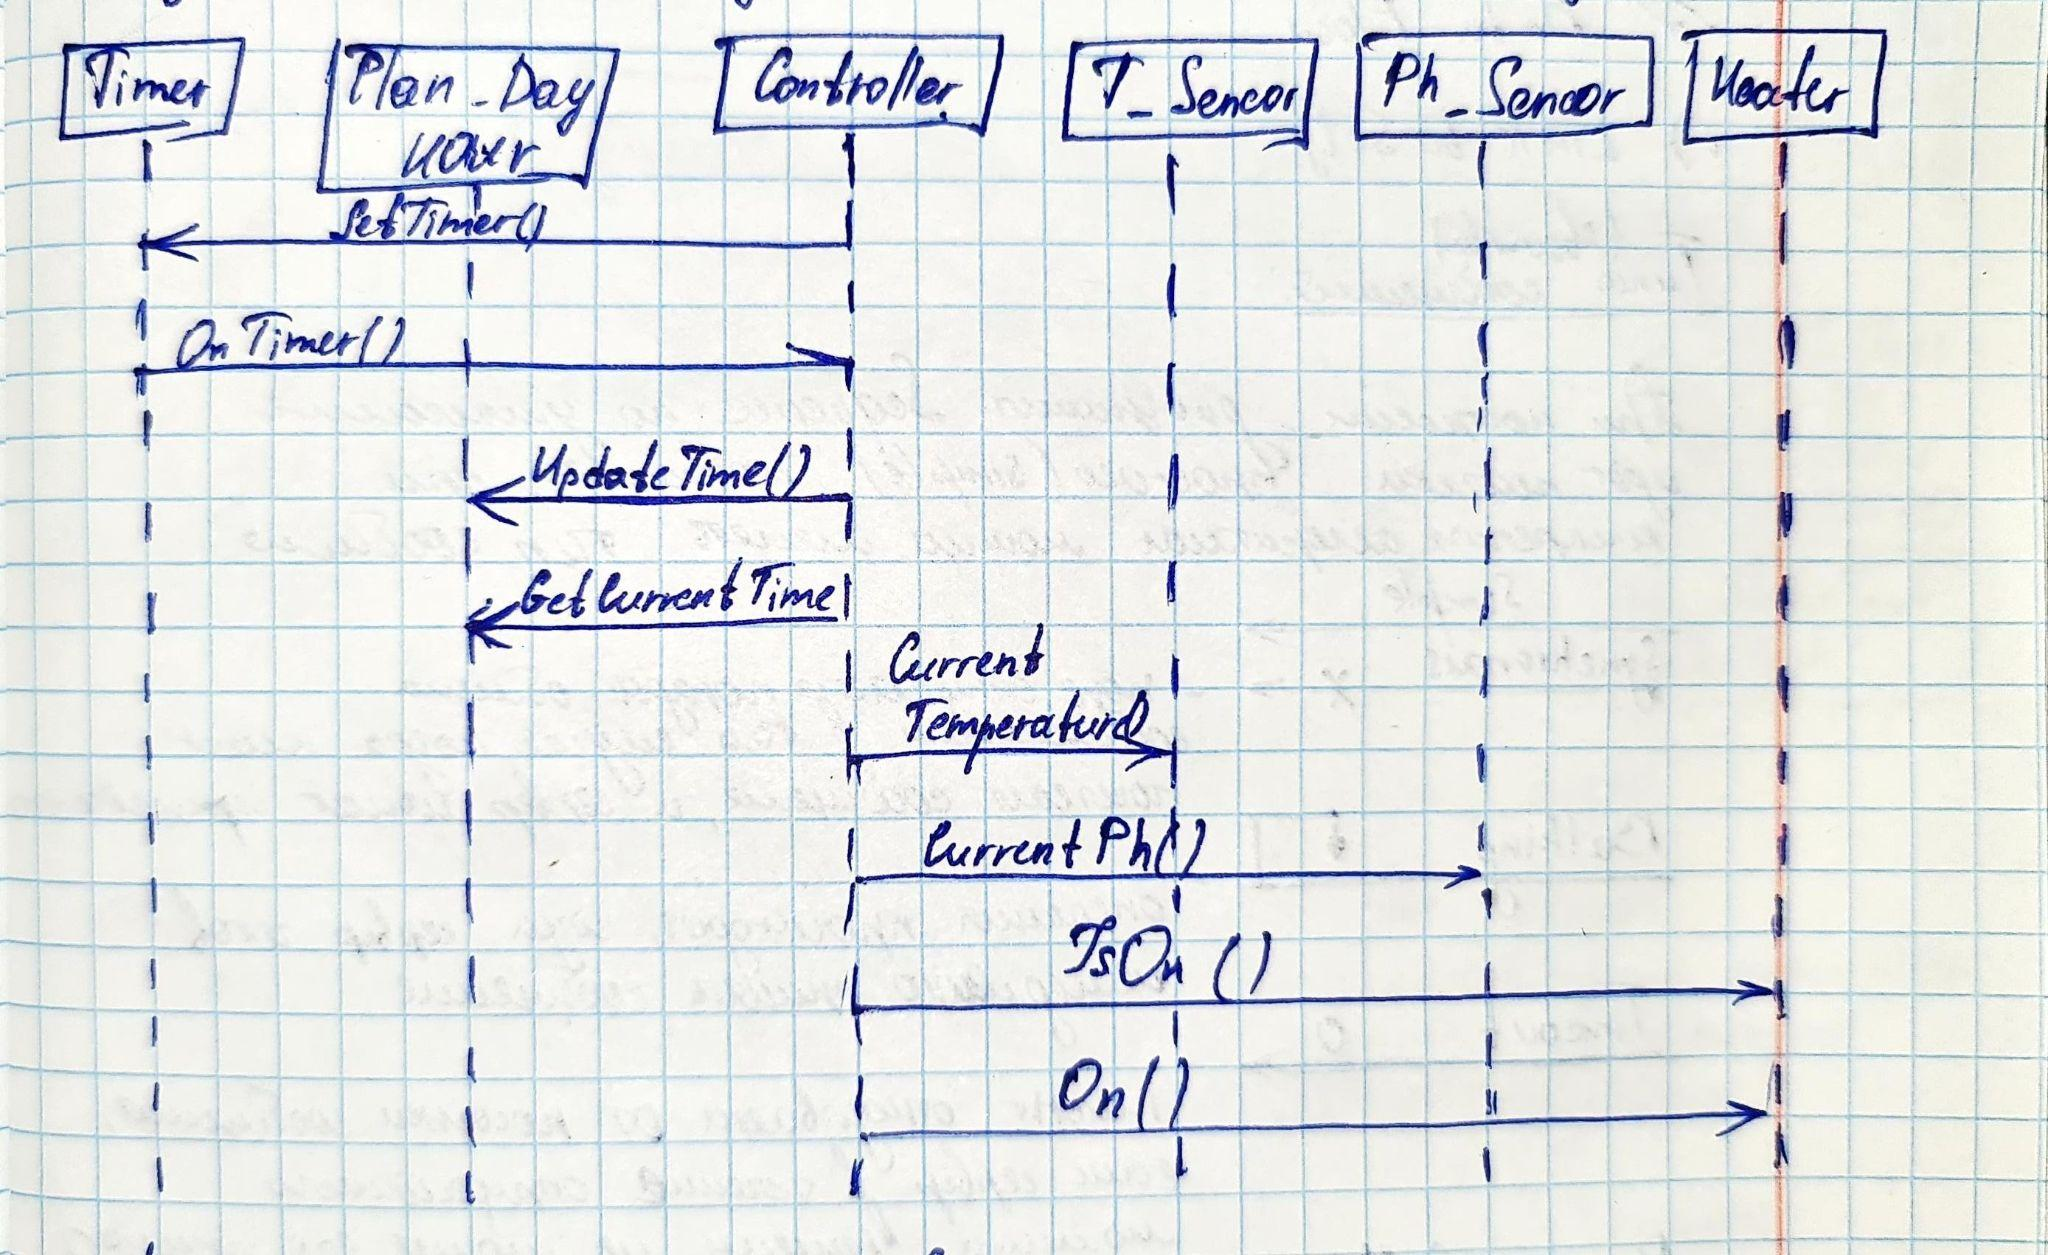 Timer
Plan_Day
Hour
Controller
T_Sencor
Ph_Sencor
Heater
SetTimer()
OnTimer()
UpdateTime()
GetCurrentTime
Current
Temperatur()
CurrentPh()
IsOn ()
On()